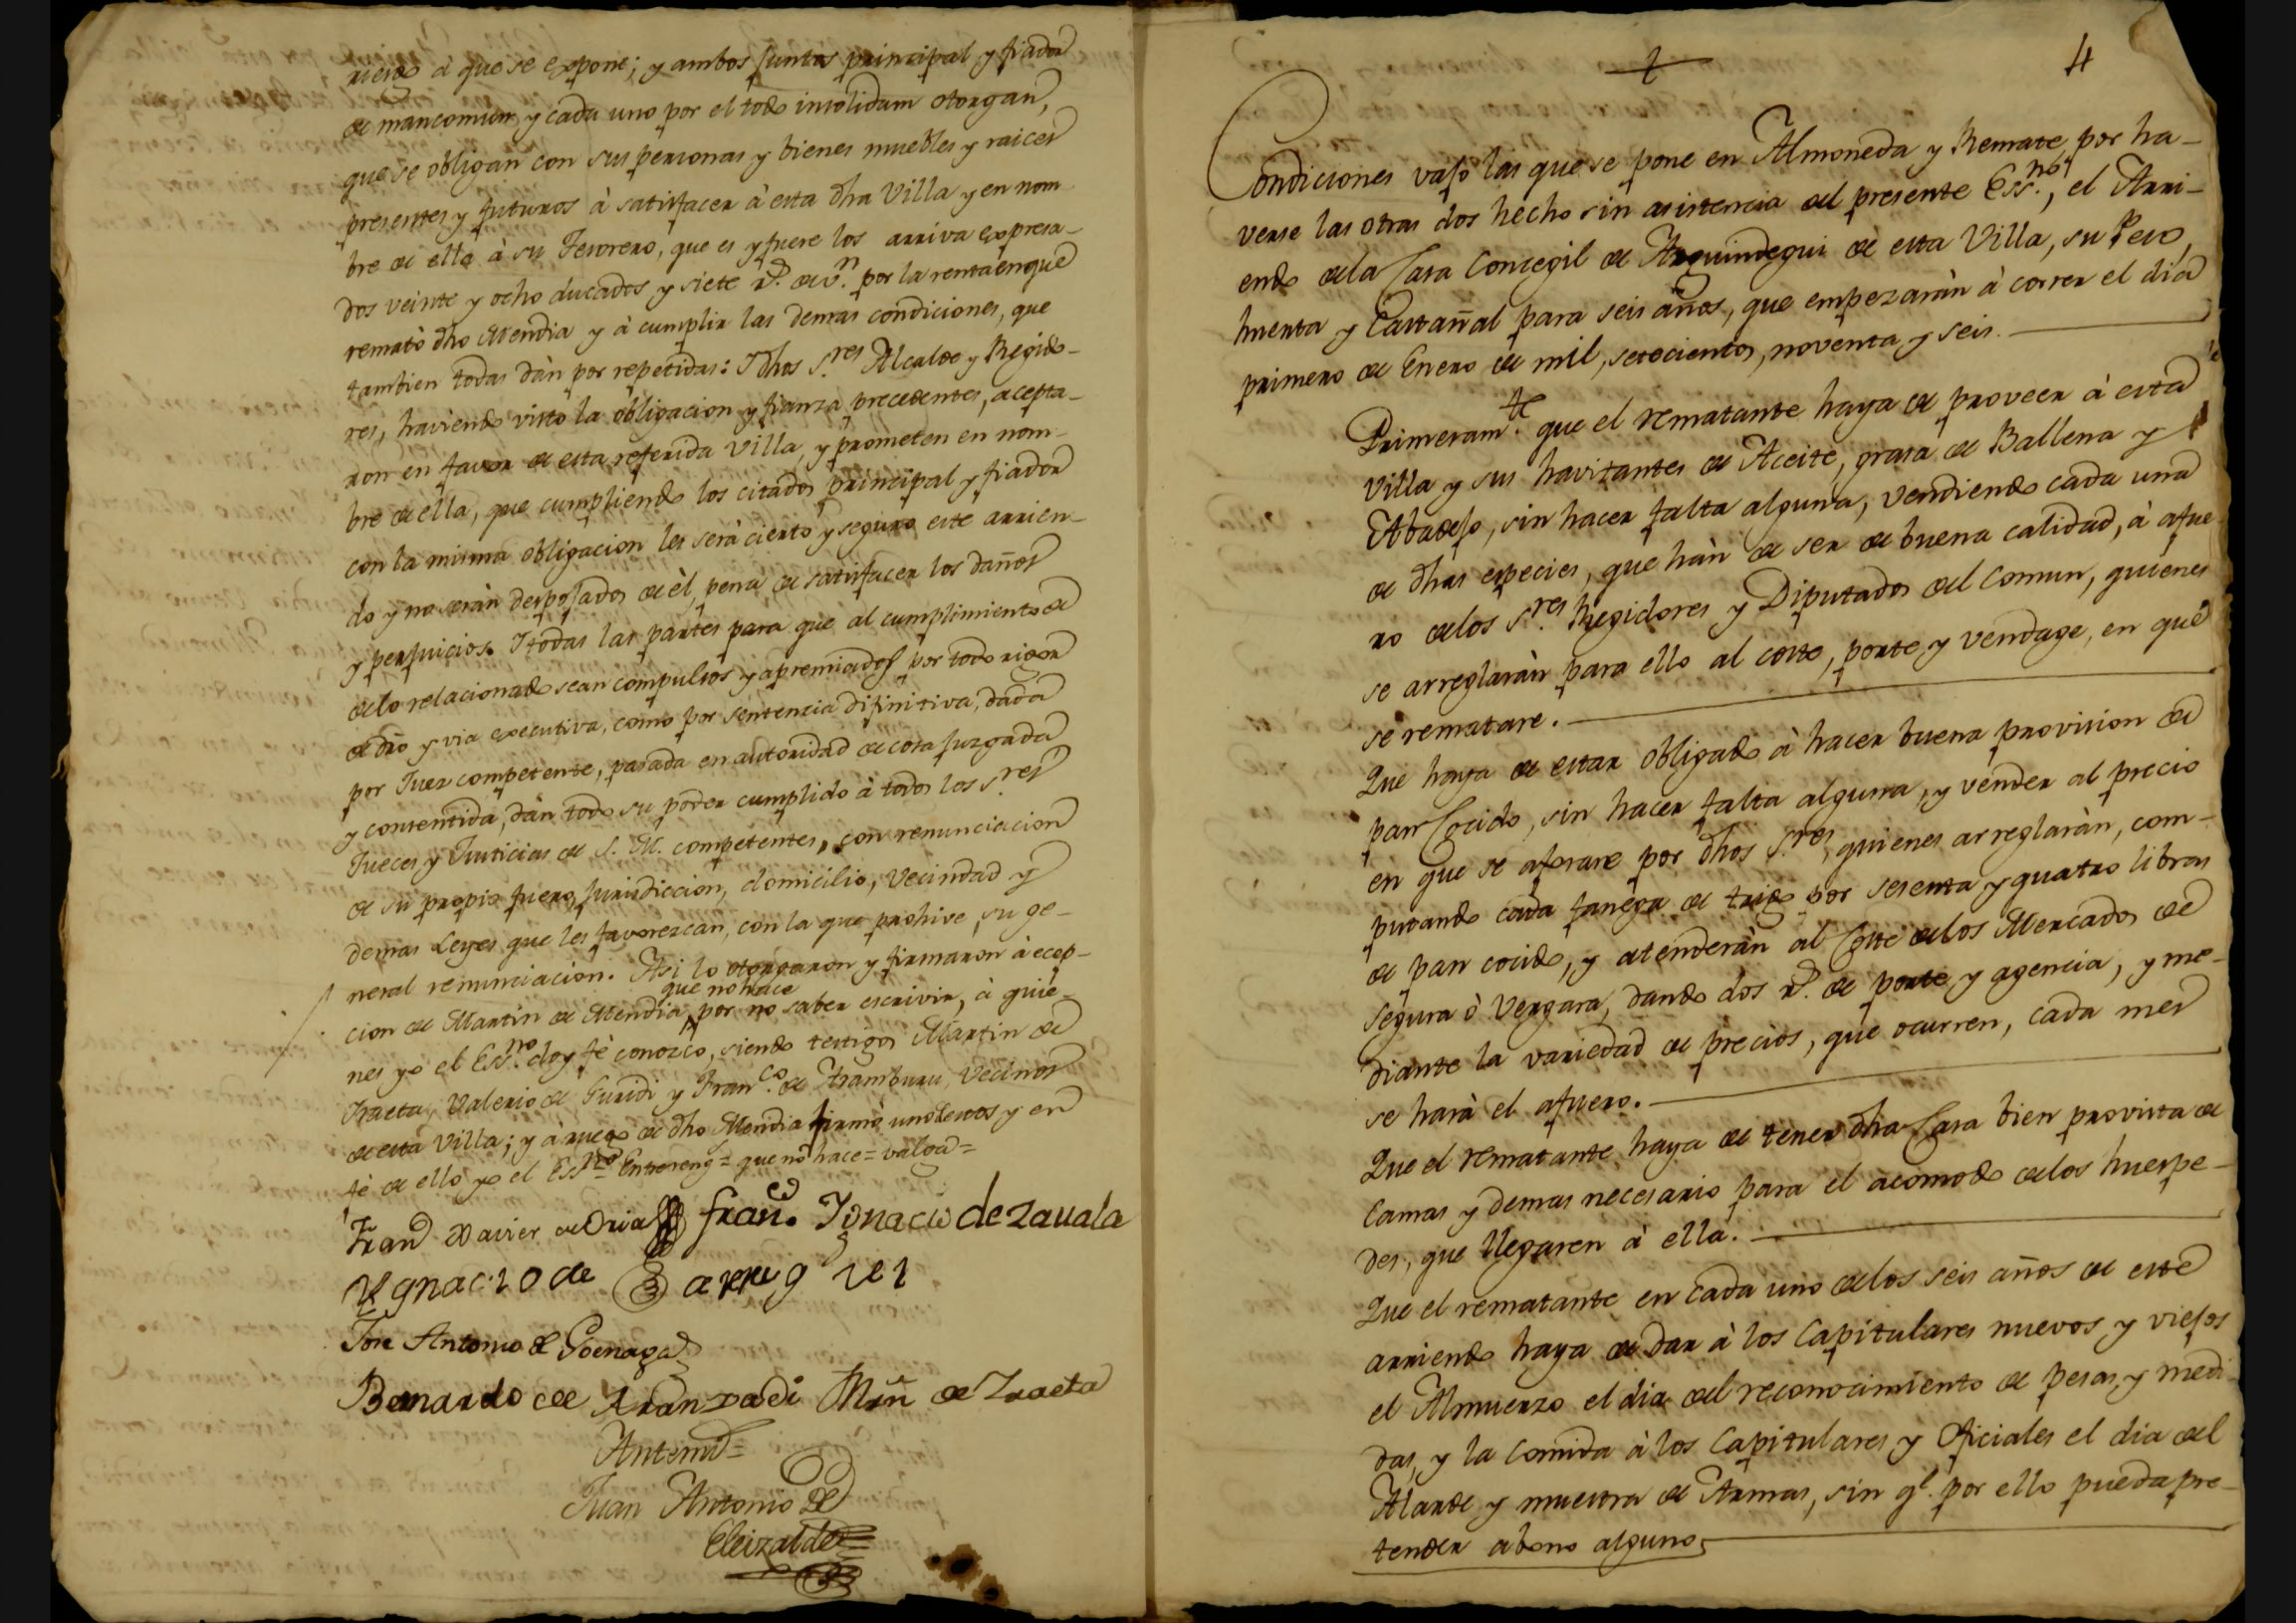 riesgo à que se expone; y ambos juntos principal y fiador
de mancomun, y cada uno por el todo insolidum otorgan,
que se obligan con sus personas y bienes muebles y raices
presentes y futuros à satisfacer à esta dha Villa y en nom
bre de ella à su Tesorero, que es y fuere los arriva expresa-
dos veinte y ocho ducados y siete r.ˢ de v.ⁿ por la renta en que
remató dho Mendia y à cumplir las demas condiciones, que
tambien todas dàn por repetidas: I dhos S.res Alcalde y Regido-
res, haviendo visto la obligacion y fianza precedentes, acepta-
ron en favor de esta referida Villa, y prometen en nom-
bre de ella, que cumpliendo los citados principal y fiador
con la misma obligacion les serà cierto y seguro este arrien-
do y no seràn desposados de èl, pena de satisfacer los daños
y perjuicios. I todas las partes para que al cumplimiento de
de lo relacionado sean compulsos y apremiados por todo rigor
de dro y via executiva, como por sentencia difinitiva, dada
por Juez competente, pasada en autoridad de cosa juzgada
y consentida, dàn todo su poder cumplido à todos los S.res
Jueces y Justicias de S. M. competentes, con renunciacion
de su propio fuero, jurisdiccion, domicilio, Vecindad y
demas Leyes que les favorezcan, con la que prohive su ge-
neral renunciacion. Asi lo otorgaron y firmaron à ecep-
que no hace
cion de Martin de Mendia, por no saber escrivir, à quie-
nes yo el Ess.no doy fè conozco, siendo testigos Martin de
Iraeta, Valerio de Guridi y Fran.co de Aramburu, Vecinos
de esta Villa; y à ruego de dho Mendia firmò uno de estos y en
fè de ello yo el Ess.no Entrereng.= que no hace = valga=
Fran.co Xavier de Oria Fran.co Ignacio de Zavala
Ygnacio de
Jose Antonio de Goenaga
Bernardo de Aranzadi Mrn de Iraeta
Antemi=
Juan Antonio de
Eleizalde
4
Condiciones vajo las que se pone en Almoneda y Remate, por ha-
verse las otras dos hecho sin asistencia del presente Ess.no, el Arri-
endo de la Casa Concegil de Arguindegui de esta Villa, su Peso,
huerta y Castañal para seis años, que empezaràn à correr el dia
primero de Enero de mil, setecientos, noventa y seis.
Primeram.te que el rematante haya de proveer à esta
Villa y sus havitantes de Aceite, grasa de Ballena y
Abadejo, sin hacer falta alguna, vendiendo cada una
de dhas especies, que hàn de ser de buena calidad, à afue
ro de los S.res Regidores y Diputados del Comun, quienes
se arreglaràn para ello al coste, porte y vendage, en que
se rematare.
Que haya de estar obligado à hacer buena provision de
pan Cocido, sin hacer falta alguna, y vender al precio
en que se aforare por dhos S.res, quienes arreglaràn, com-
putando cada fanega de trigo por sesenta y quatro libras
de pan cocido, y atenderàn al Coste de los Mercados de
Segura ò Vergara, dando dos r.ˢ de porte y agencia, y me-
diante la variedad de precios, que ocurren, cada mes
se harà el afuero.
Que el rematante haya de tener dha Casa bien provista de
Camas y demas necesario para el acomodo de los huespe-
des, que llegaren à ella.
Que el rematante en cada uno de los seis años de este
arriendo haya de dar à los Capitulares nuevos y viejos
el Almuerzo el dia del reconocimiento de pesas, y medi
das, y la Comida à los Capitulares y Oficiales el dia del
Alarde y muestra de Armas, sin q.e por ello pueda pre-
tender abono alguno